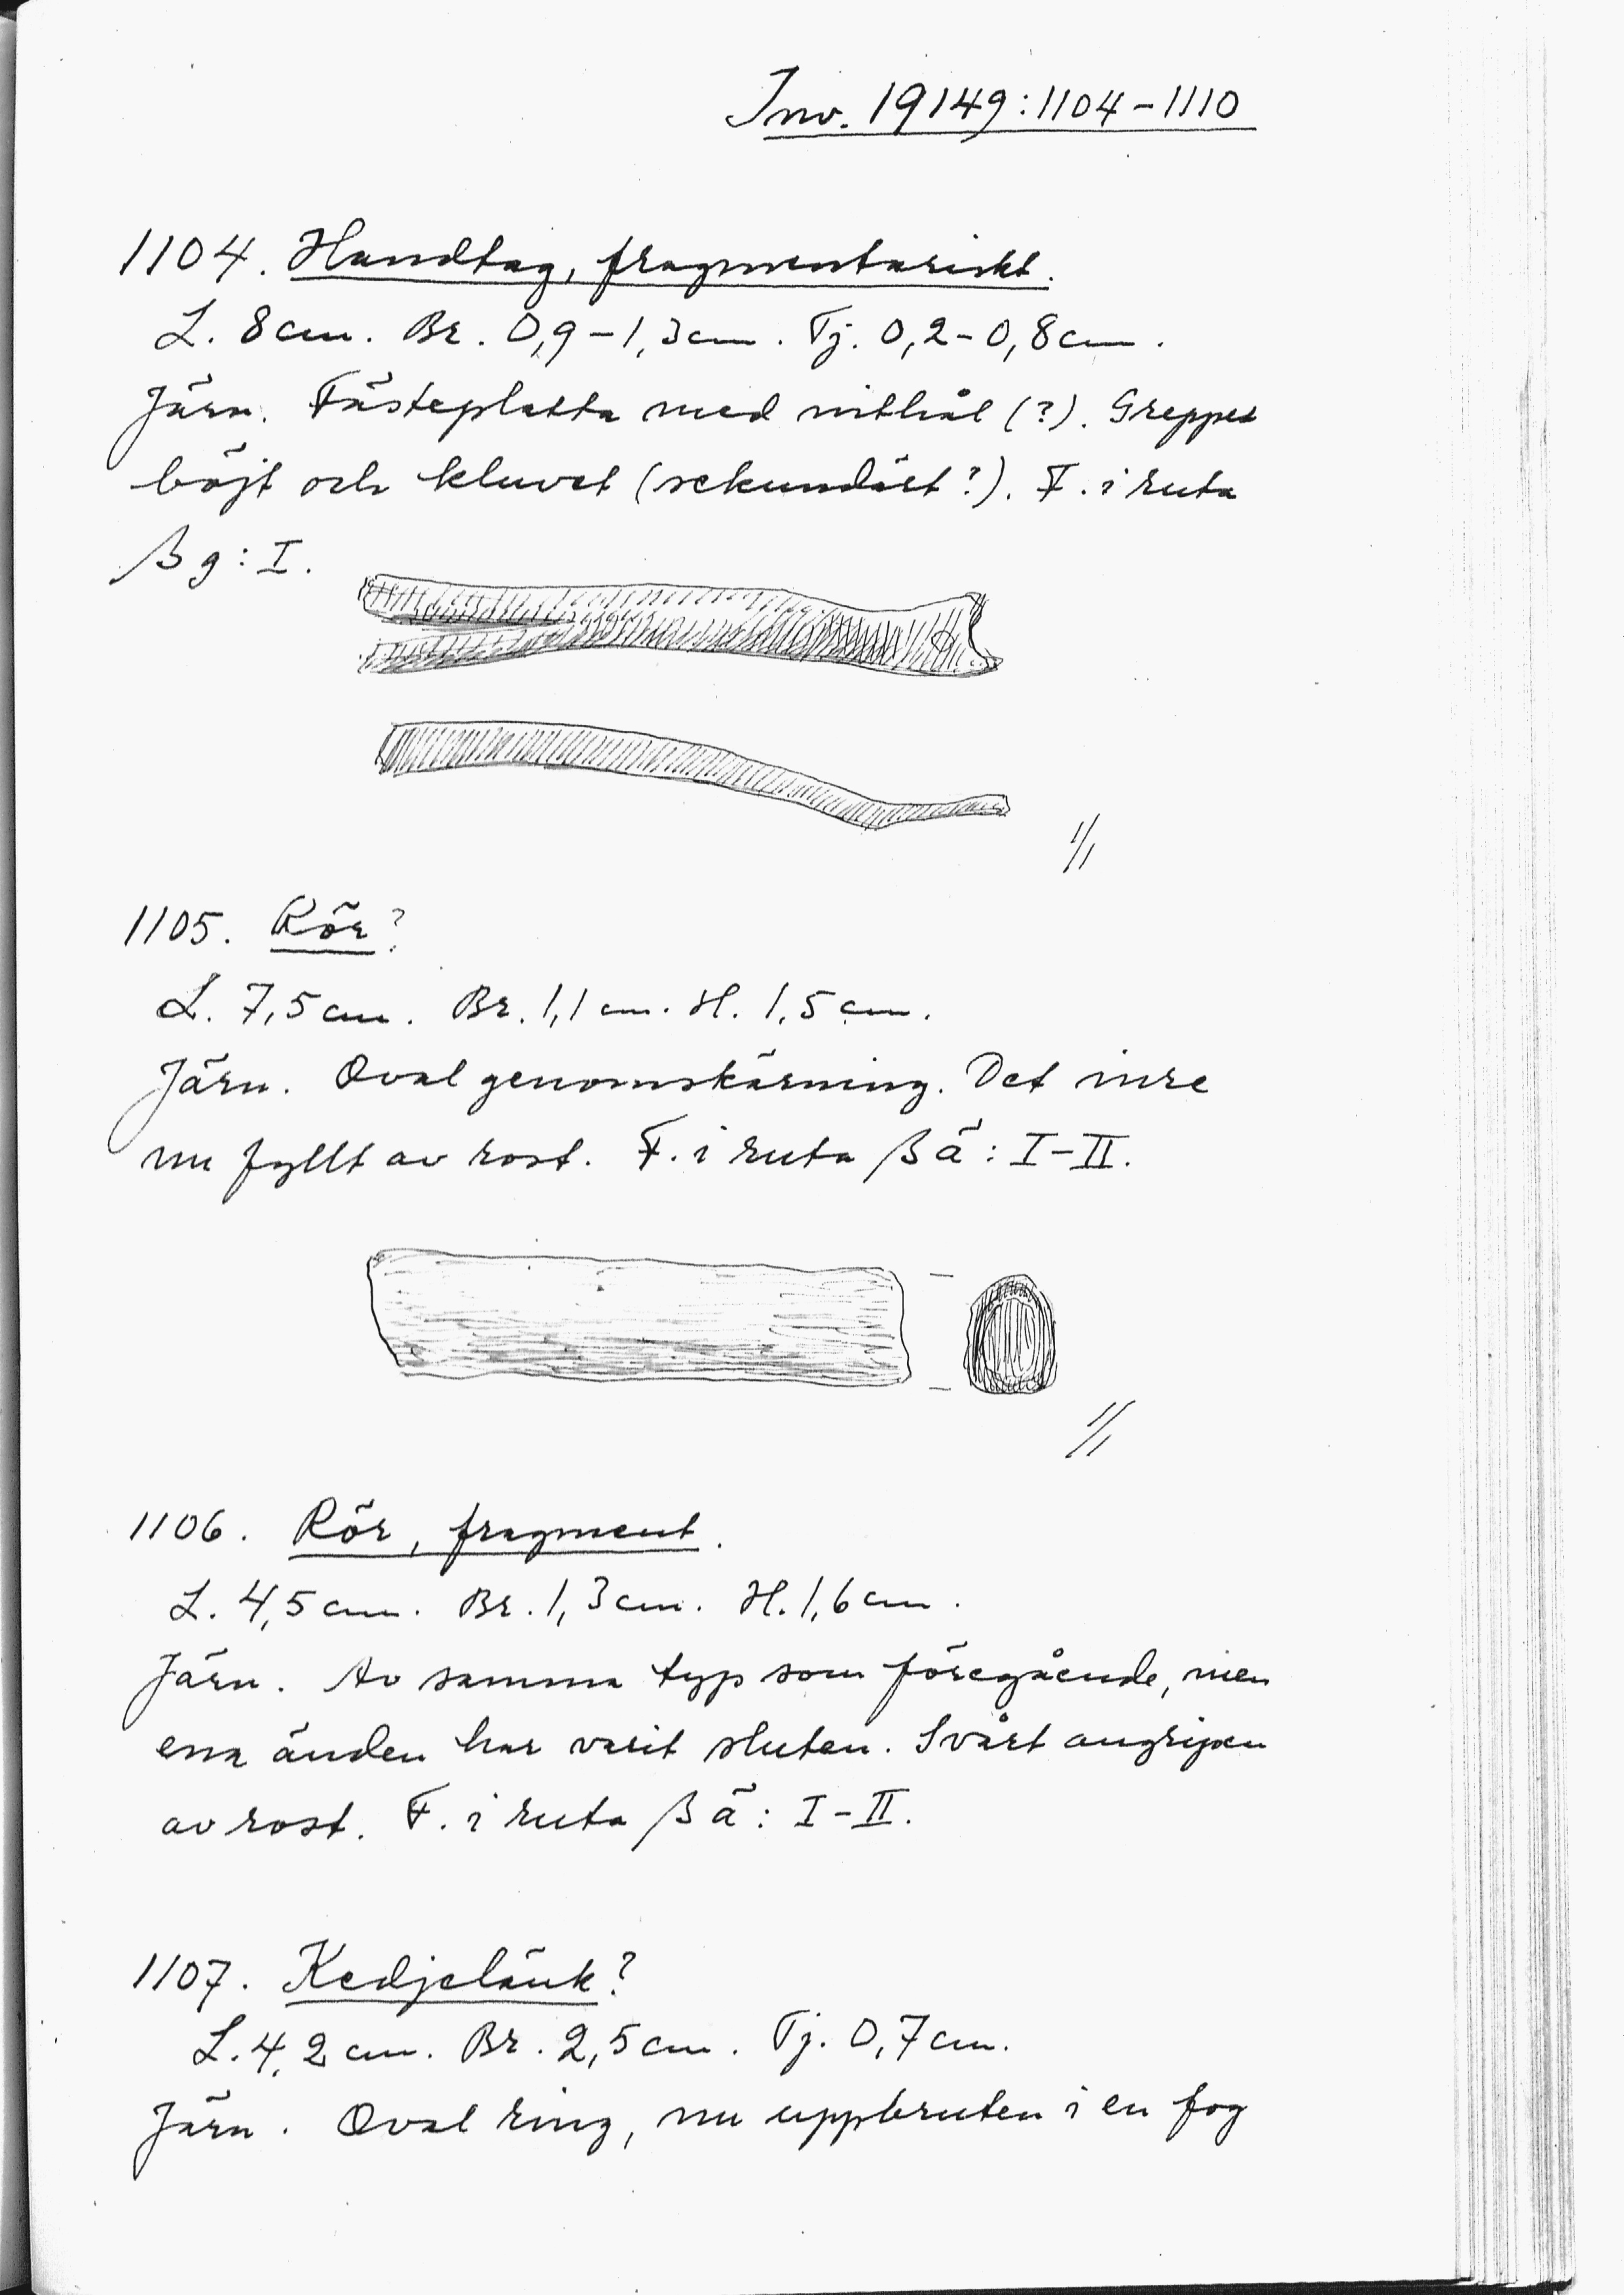 Inv. 19149:1104-1110
1104. Handtag, fragmentariskt.
L. 8 cm. Br. 0,9-1,3 cm. Tj. 0,2-0,8 cm.
Järn. Fästeplatta med nithål (?). Greppet
böjt och kluvet (sekundärt?). F. i ruta
ßg: I.
1/1
1105. Rör?
L. 7,5 cm. Br. 1,1 cm. H. 1,5 cm.
Järn. Oval genomskärning. Det inre
nu fyllt av rost. F. i ruta ßä: I-II.
1/1
1106. Rör, fragment.
L. 4,5 cm. Br. 1,3 cm. H. 1,6 cm.
Järn. Av samma typ som föregående, men
ena änden har varit sluten. Svårt angripen
av rost. F. i ruta ßä: I-II.
1107. Kedjelänk?
L. 4,2 cm. Br. 2,5 cm. Tj. 0,7 cm.
Järn. Oval ring, nu uppbruten i en fog